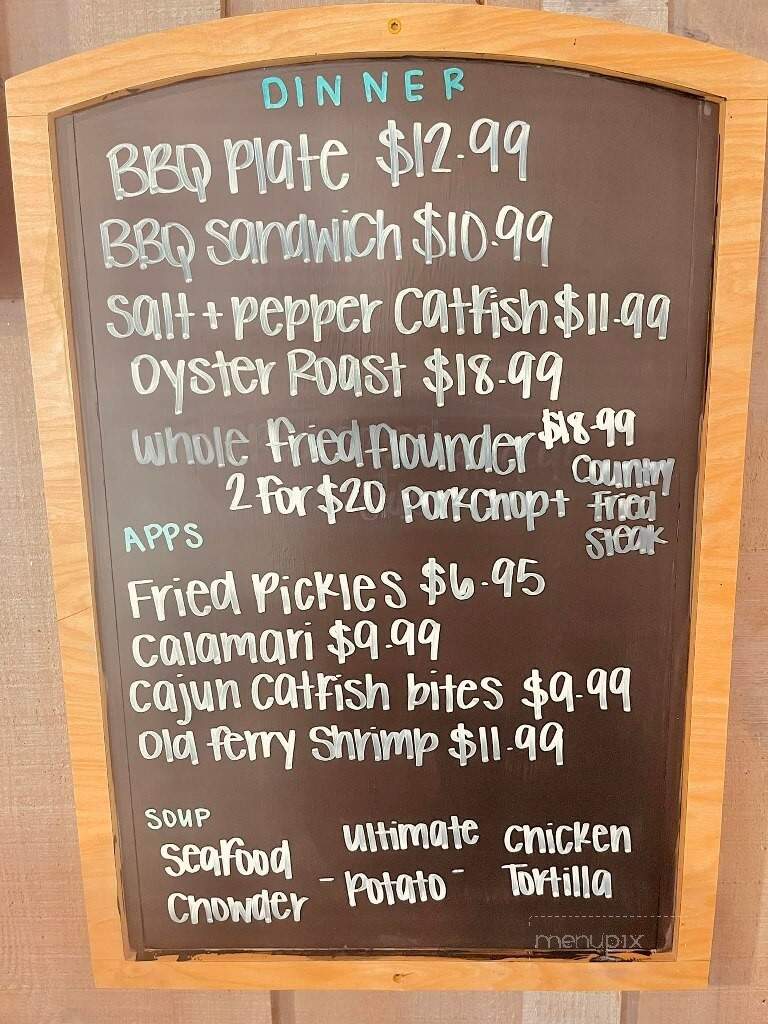 DINNER
BBQ Plate $12.99
BBQ Sandwich $10.99
Salt + pepper Catfish $11.99
Oyster Roast $18.99
whole fried flounder $18.99
2 for $20 Porkchop + Country Fried Steak
APPS
Fried Pickles $6.95
Calamari $9.99
Cajun Catfish bites $9.99
Old ferry Shrimp $11.99
SOUP
Seafood Chowder - Ultimate Potato - Chicken Tortilla
menupix